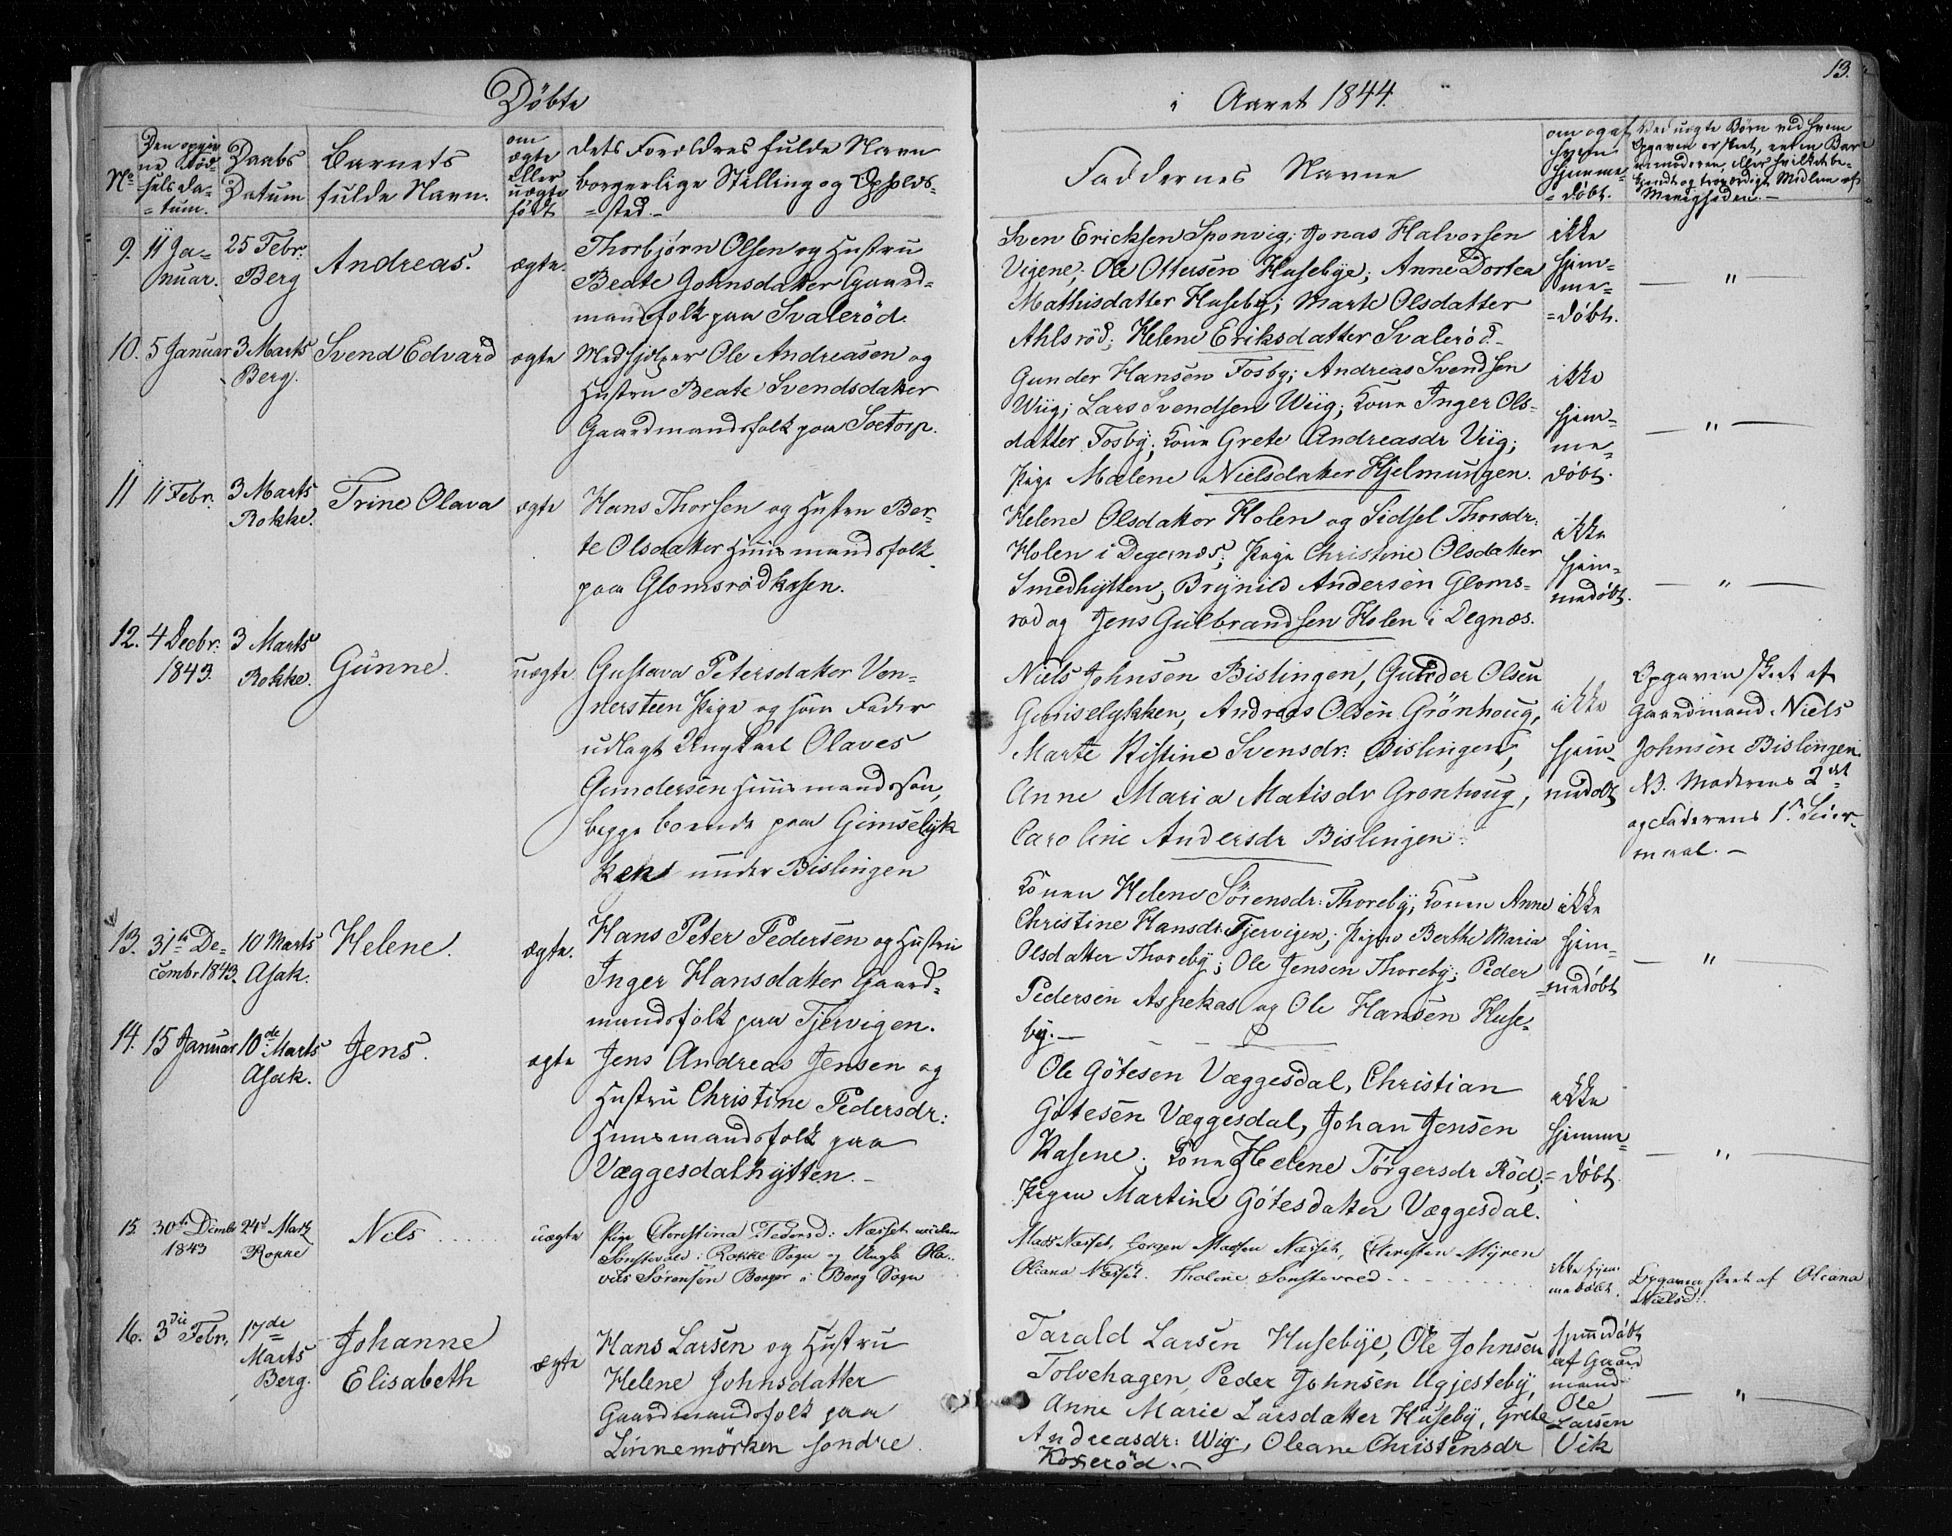 13.
Döbte i Aaret 1844.
No
Den opgiv
ne Föd-
selsda-
=tum.
Daabs
Datum
Barnets
fulde Navn.
om
ægte
eller
uægte
födt
dets Forældres fulde Navn
borgerlige Stilling og Opholds-
=sted.-
Faddernes Navne
om og af
hvem
hjemme-
=döbt.
Ved uægte Börn ved hvem
Opgaven er skeet, enten Bar
nemoderen, eller hvilket be-
kjendt og troværdigt Medlem af
Menigheden.-
9. 11 Ja-
nuar.
25 Febr.
Berg
Andreas.
ægte.
Thorbjörn Olsen og Hustru
Beate Johnsdatter Gaard=
mandsfolk paa Svaleröd.
Sven Ericksen Sponvig; Jonas Halvorsen
Vigene; Ole Ottersen Husebye; Anne Dortea
Mathisdatter Huseby; Marte Olsdatter
Ahlsröd; Helene Eriksdatter Svaleröd-
ikke
hjem-
me-
=döbt.
— " —
10. 5 Januar
3 Marts
Berg.
Svend Edvard
ægte
Medhjelper Ole Andreasen og
Hustru Beate Svendsdatter
Gaardmandsfolk paa Soetorp.
Gunder Hansen Fosby; Andreas Svendsen
Wiig; Lars Svendsen Wiig; Kone Inger Ols-
datter Fosby; Kone Grete Andreasdr Viig;
Pige Malene Nielsdatter Hjelmungen.
ikke
hjem-
me-
döbt.
— " —
11 11 Febr.
3 Marts
Rokke.
Trine Olava
ægte
Hans Thorsen og Hustru Ber-
te Olsdatter Huusmandsfolk
paa Glomsrödkasen.
Helene Olsdatter Holen og Sidsel Thorsdr:
Holen i Degernæs; Pige Christine Olsdatter
Smedhytten; Brynild Andersen Gloms-
rod og Jens Gulbrandsen Holen i Degnæs.
ikke
hjem-
medöbt.
— " —
12. 4 Decbr:
1843.
3 Marts
Rokke.
Gunne.
uægte
Gustava Petersdatter Ven-
nersteen Pige og som Fader
udlagt Ungkarl Olaves
Gundersen Huusmandssön,
begge boende paa Gimselyk
ken under Bislingen
Niels Johnsen Bislingen, Gunder Olsen
Gimselykken, Andreas Olsen Grönhoug,
Marte Kistine Svensdr: Bislingen,
Anne Maria Matisdr Gronhoug,
Caroline Andersdr Bislingen.
ikke
hjem-
medöbt
Opgaven skeet af
Gaardmand Niels
Johnsen Bislingen
NB. Moderens 2det
og Faderens 1ste Leier-
maal. -
13. 31te De-
cembr 1843.
10 Marts
Asak.
Helene.
ægte.
Hans Peter Pedersen og Hustru
Inger Hansdatter Gaard-
mandsfolk paa Tjervigen.
Konen Helene Sörensdr: Thoreby, Konen Anne
Christine Hansdr. Tjervigen; Pigen Berthe Maria
Olsdatter Thoreby; Ole Jensen Thoreby; Peder
Pedersen Aspekas og Ole Hansen Huse-
by.-
ikke
hjem-
medöbt
— " —
14. 15 Januar
10de Marts
Asak.
Jens.
ægte
Jens Andreas Jensen og
Hustru Christine Pedersdr:
Huusmandsfolk paa
Væggesdalhytten.-
Ole Götesen Væggesdal, Christian
Götesen Væggesdal, Johan Jensen
Kasene; Kone Helene Törgersdr Röd;
Pigen Martine Götesdatter Væggesdal.
ikke
hjemme-
=döbt.
— " —
15. 30te Dcmbr
1843
24de Marts
Rokke
Nils ....
uægte
Pige Christina Pedersd: Næsset
Sonstevold i Rokke Sogn og Ungk Ola-
ves Sörensen Borger i Berg Sogn
Mads Næsset, Jorgen Madsen Næsset, Thersten Myren
Oliana Næsset. Tholine Sonstevold
ikke hjem-
medöbt.
Opgaven skeet af Oliana
Nielsd:
16. 3die Febr.
17de
Marts
Berg.
Johanne
Elisabeth
ægte
Hans Larsen og Hustru
Helene Johnsdatter
Gaardmandsfolk paa
Linnemörken söndre.
Tarald Larsen Husebye, Ole Johnsen
Tolvehagen, Peder Johnsen Ugjesteby,
Anne Marie Larsdatter Huseby, Grete
Andreasdr: Wig, Oleane Christensdr
Koxeröd.-
hjemedöbt
af Gaard
mand
Ole
Larsen
Vik
— " —